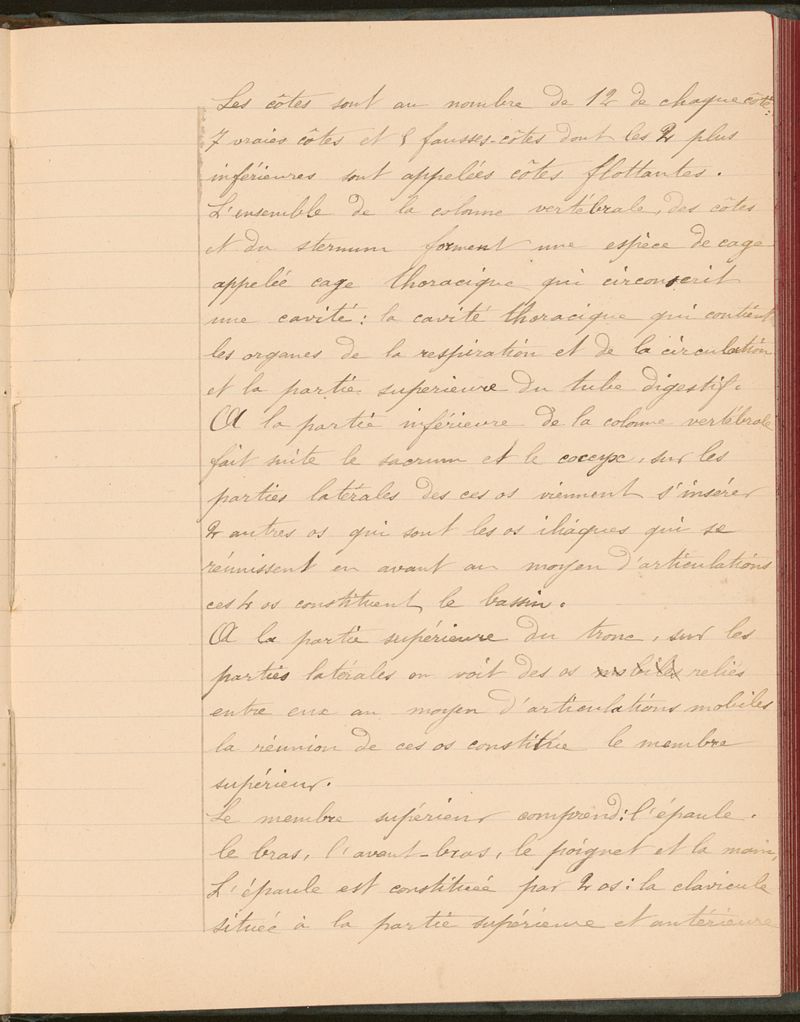 Les côtes sont au nombre de 12 de chaque côté :
7 vraies côtes et 5 fausses-côtes dont les 2 plus
inférieures sont appelées côtes flottantes.
L'ensemble de la colonne vertébrale, des côtes
et du sternum forment une espèce de cage
appelée cage thoracique qui circonscrit
une cavité : la cavité thoracique qui contient
les organes de la respiration et de la circulation
et la partie superieure du tube digestif.
A la partie inférieure de la colonne vertébrale
fait suite le sacrum et le coccyx, sur les
parties latérales des ces os viennent s'insérer
2 autres os qui sont les os iliaques qui se
réunissent en avant au moyen d'articulations
ces 4 os constituent le bassin.
A la partie supérieure du tronc, sur les
parties latérales on voit des os mobiles reliés
entre eux au moyen d'articulations mobiles
la réunion de ces os constitue le membre
supérieur.
Le membre supérieur comprend : l'épaule.
le bras, l'avant-bras, le poignet et la main,
L'épaule est constituée par 2 os : la clavicule
située à la partie supérieure et antérieure